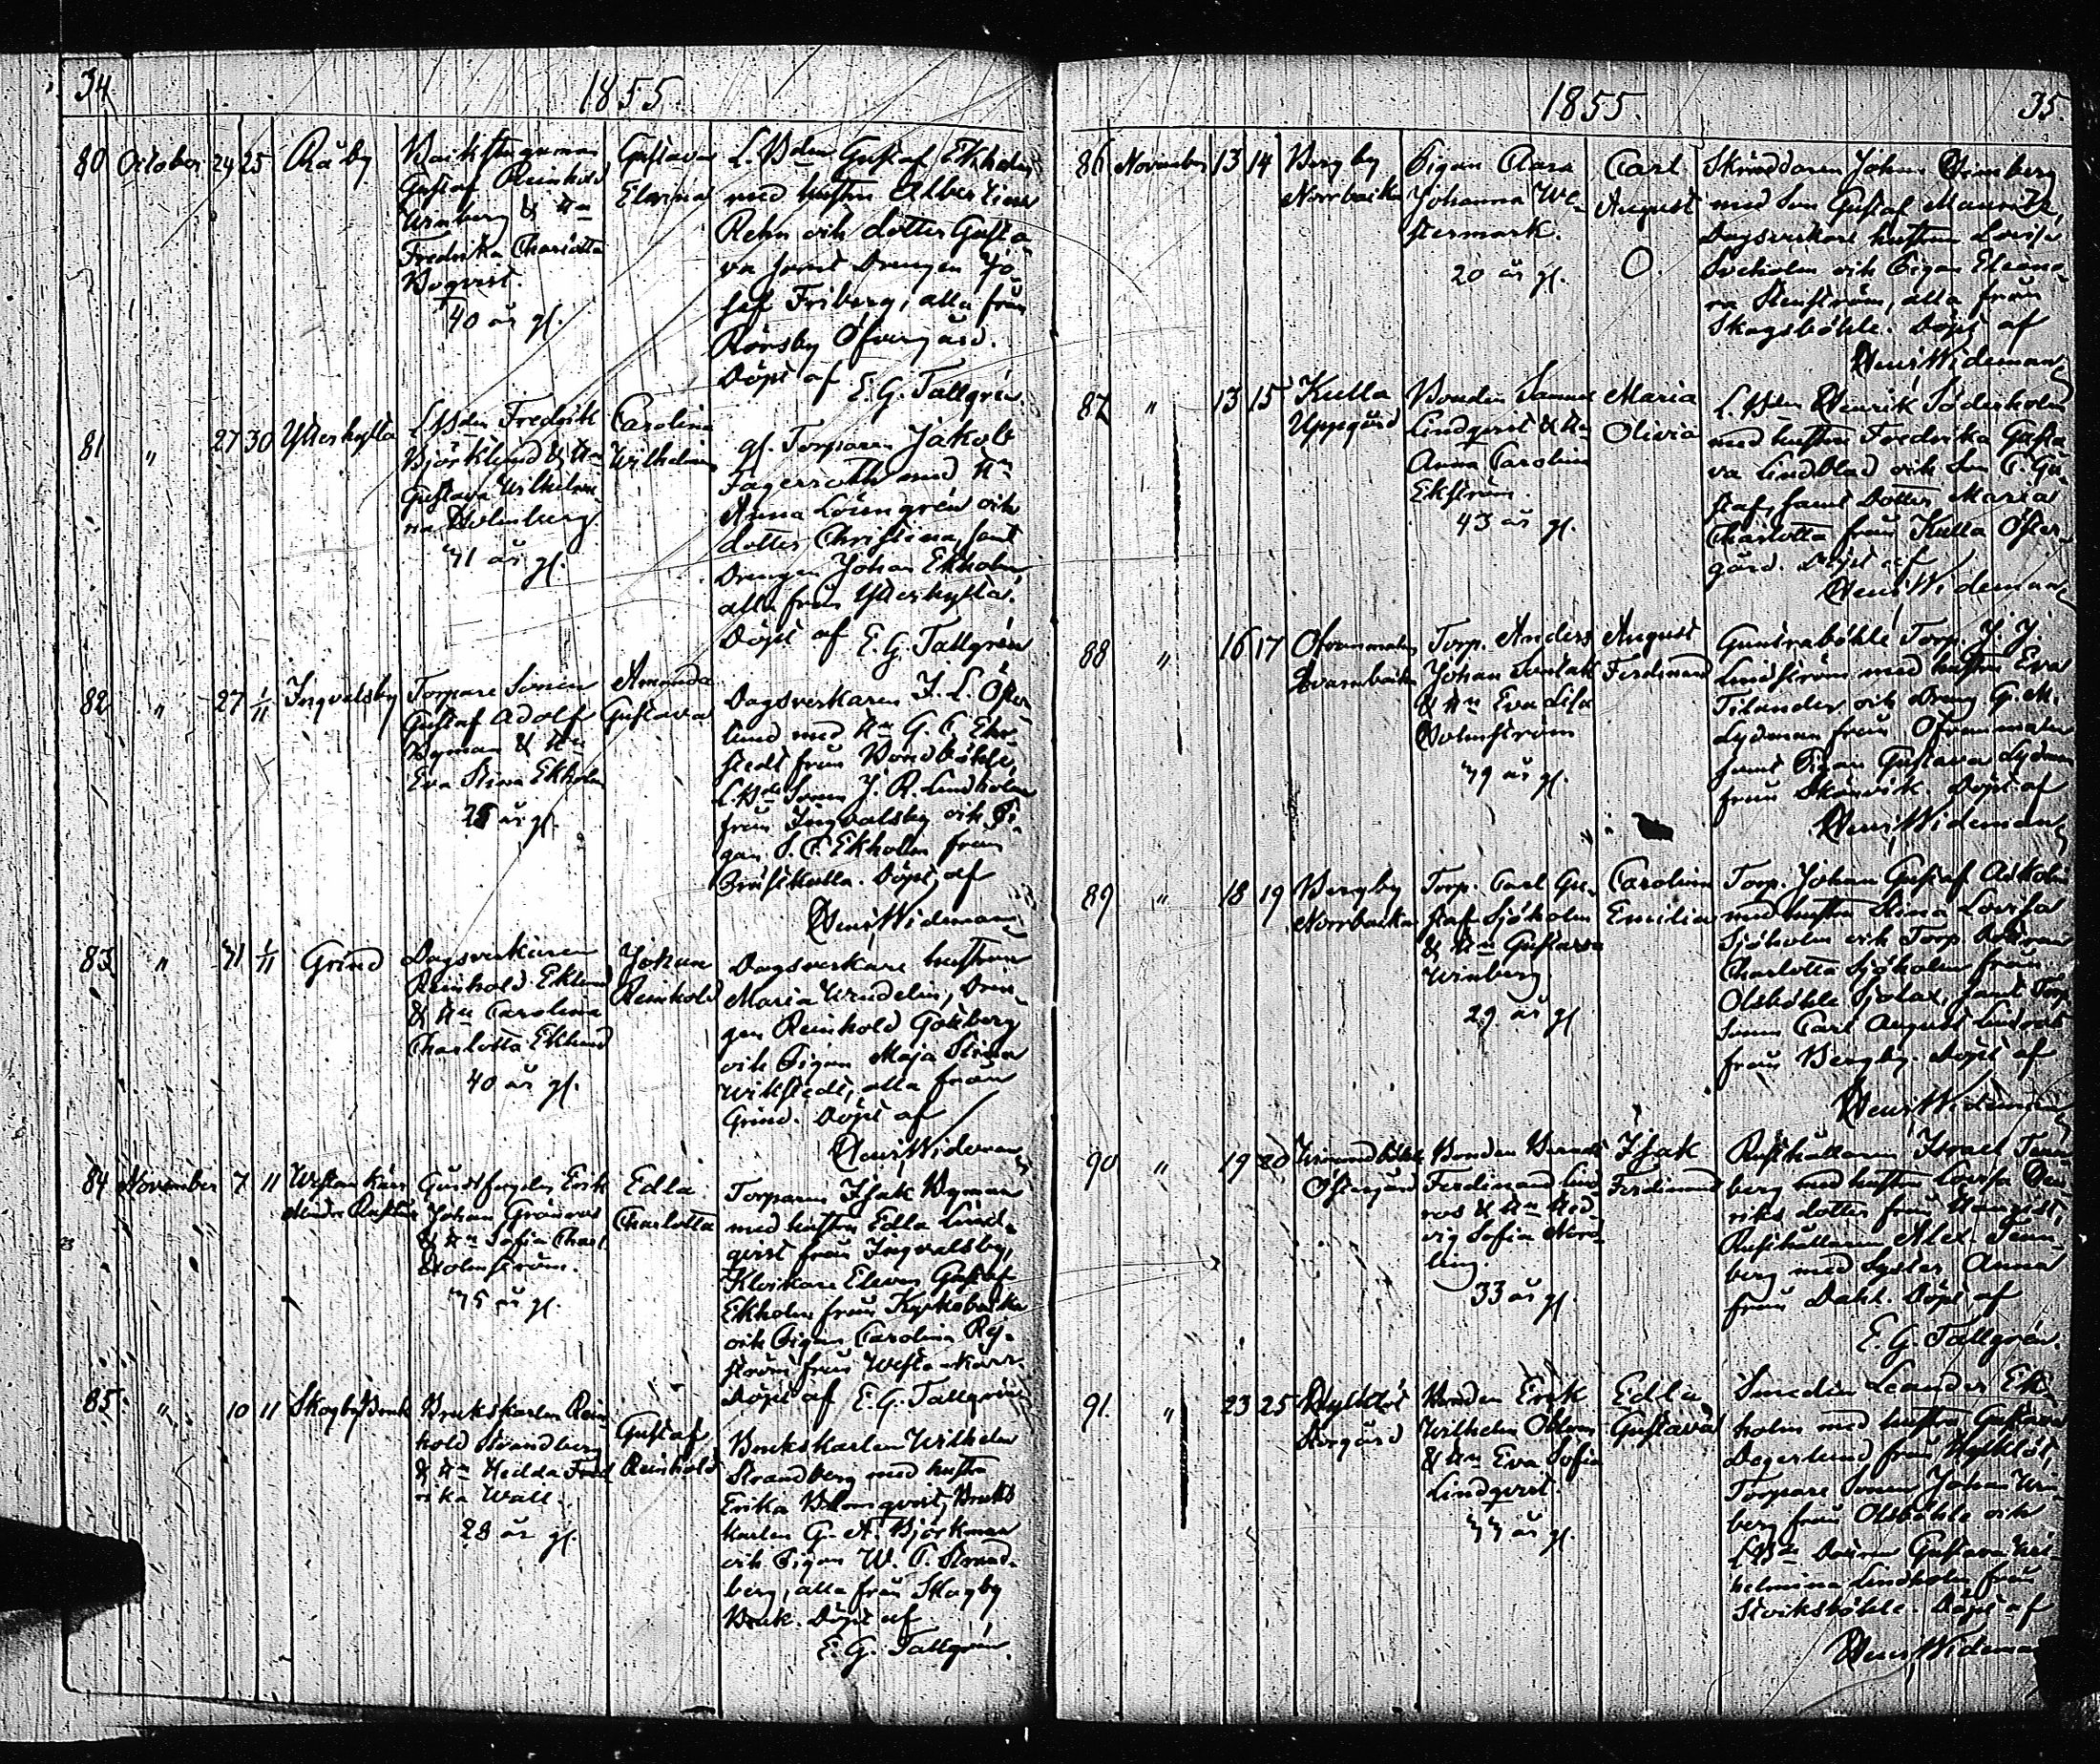 34.
1855.
80 October 24 25 Råby
Backstuguman
Gustaf Reinhold
Winberg & Hu
Fredrika Charlotta
Boqvist.
40 år gl.
Gustava
Elevina
L. Bden Gustaf Ekholm
med hustru Albertina
Rehn och dotter Gusta-
va samt Drengen Jo-
sef Friberg, alla från
Rörsby Öfvergård.
Döpt af E. G. Tallgrén
81 " 27 30 Ytterkysta
L Bden Fredrik
Björklund & Hu
Gustava Wilhelmi-
na Holmberg
41 år gl.
Carolina
Wilhelmina
gl. Torparen Jakob
Fagerroth med Hu
Anna Löfngrén och
dotter Christina, samt
Drengen Johan Ekholm
alla från Ytterkysta.
Döpt af E. G. Tallgrén
82 " 27 1/11 Ingvalsby
Torpare Sonen
Gustaf Adolf
Nyman & Hu
Eva Stina Ekholm
25 år gl.
Amanda
Gustava
Dagsverkaren J. L. Öster-
lund med Hu G. C. Ek-
stedt från Bondböhle,
L. Bde Sonen J. R. Lindholm
från Ingvalsby och Pi-
gan S. C. Ekholm från
Döpt af
Henr Wideman
83 " 31 1/11 Grind
Dagsverkaren
Reinhold Eklund
& Hu Carolina
Charlotta Eklund
40 år gl.
Johan
Reinhold
Dagsverkare hustrun
Maria Wendelin, Dren-
gen Reinhold Göstberg
och Pigan Maja Stina
Wikstedt, alla från
Grind. Döpt af
Henr Wideman
84 November 7 11 Westankärr
Erik
Johan Grönroos
& Hu Sofia Charl.
Holmström.
35 år gl.
Edla
Charlotta
Torparen Isak Nyman
med hustru Edla Lind-
qvist från Ingvalsby,
Klockare Eleven Gustaf
Ekholm från Kyrkobacka
och Pigan Carolina Rej-
ström från Westankärr.
Döpt af E. G. Tallgrén
85. " 10 11 Skogby Bruk
Brukskarlen Rein-
hold Strandberg
& Hu Hedda Fred
rika Wall.
28 år gl.
Gustaf
Reinhold
Brukskarlen Wilhelm
Strandberg med hustru
Erika Blomqvist, Bruks
karlen G. A. Björkman
och Pigan W. C. Strand-
berg, alla från Skogby
Bruk. Döpt af
E. G. Tallgrén.
1855.
35.
86 November 13 14 Bergby
Norrbacka
Pigan Clara
Johanna We-
stermark.
20 år gl.
Carl
August
O.
Skräddaren Johan Winberg
med Son Gustaf Mauritz,
Dagsverkare hustrun Lovisa
Sveholm och Pigan Eleono-
ra Stenström, alla från
Skogsböhle. Döpt af
Henr Wideman
87 " 13 15 Kulla
Uppgård
Bonden Samuel
Lindqvist & Hu
Anna Carolina
Ekström.
43 år gl.
Maria
Olivia
L. Bden Henrik Söderholm
med hustru Fredrika Gusta
va Lindblad och Son C. Gu-
staf, samt Dotter Maria
Charlotta från Kulla Öster-
gård. Döpt af
Henr Wideman
88 " 16 17 Ofvanmalm
Qvarnbacka
Torp. Anders
Johan
& Hu Eva Lisa
Holmström
39 år gl.
August
Ferdinand
Gunnarsböhle Torp. J. J.
Lindström med hustru Eva
Tilander och Dreng G. M.
Lydman från Ofvanmalm
samt Pigan Gustava Lydman
från Skärvik. Döpt af
Henr Wideman
89 " 18 19 Bergby
Norrbacka
Torp. Carl Gu-
staf Sjöholm
& Hu Gustava
Winberg
29 år gl
Carolina
Emilia
Torp. Johan Gustaf Askholm
med hustru Stina Lovisa
Sjöholm och Torp. Dottren
Charlotta Sjöholm från
Olsböhle Sjölax, samt Torp.
Sonen Carl August Lindqvist
från Bergby. Döpt af
Henr Wideman
90 " 19 20
Östergård
Bonden Berndt
Ferdinand Lind
roos & Hu Hed-
vig Sofia Nord-
ling.
33 år gl.
Isak
Ferdinand
Rusthållaren Israel Tenn
berg med hustru Lovisa Hen-
riks dotter från
Rusthållaren Alex. Tenn-
berg med Syster Anna
från Dahl. Döpt af
E. G. Tallgrén.
91. " 23 25
Storgård
Bonden Erik
Wilhelm Oklom
& Hu Eva Sofia
Lindqvist.
33 år gl.
Edla
Gustava
Smeden Leander Ek-
holm med hustru Gustava
Degerlund från
Torpare Sonen Johan Win-
berg från Olsböhle och
L Bde Dottren Gustava Wil-
helmina Lindholm från
Döpt af
Henr Wideman